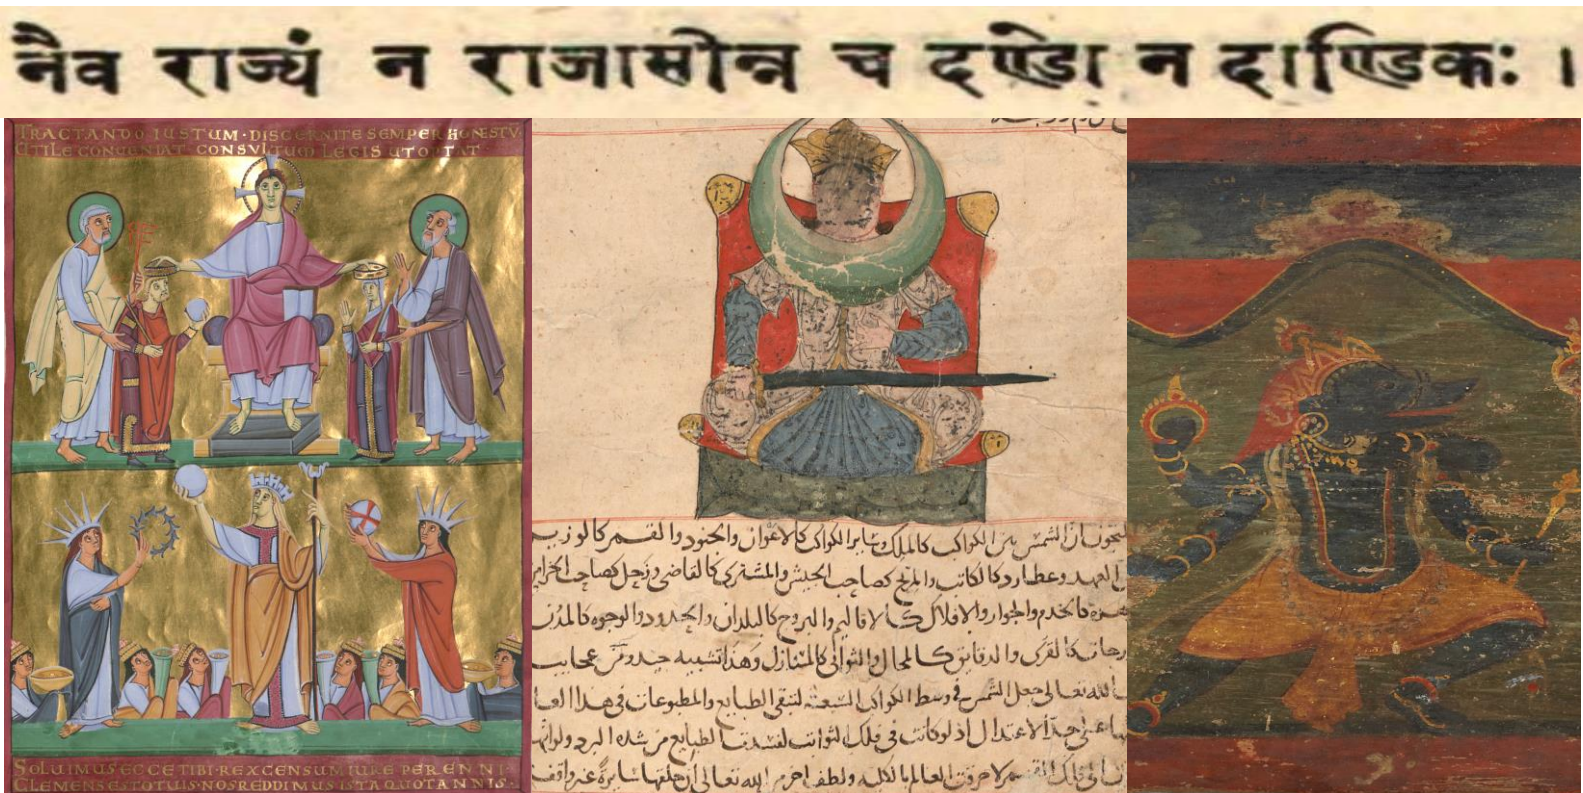 नैव राज्यं न राजासीन्न च दण्डो न दाण्डिकः ।
TRACTANDO IUSTUM · DISCERNITE SEMPER HONESTU
UTILE CONVENIAT CONSULTUM LEGIS UT OPTAT
SOLVIMUS ECCE TIBI · REX CENSUM IURE PERENNI ·
CLEMENS ESTO TUIS · NOS REDDIMUS ISTA QUOTANNIS ·
ان الشمس بين الكواكب كالملك وسائر الكواكب كالاعوان والجنود والقمر كالوزير
العهد وعطارد كالكاتب والمريخ كصاحب الجيش والمشتري كالقاضي وزحل كصاحب الخزاين
كالخدم والجوار والافلاك كالاقاليم والبروج كالبلدان والحدود والوجوه كالمدن
كالقرى والدقايق كالمحال والثواني كالمنازل وهذا تشبيه جيد ومن عجايب
الله تعالى جعل الشمس في وسط الكواكب السبعة لتبقى الطبايع والمطبوعات في هذا العا
الاعتدال اذ لو كانت في فلك الثوابت لفسدت الطبايع من شدة البرد ولو انها
فلك القمر لاحترقت العالم بالكلية ولطف اخر من الله تعالى ان خلقها سايرة غير واقف